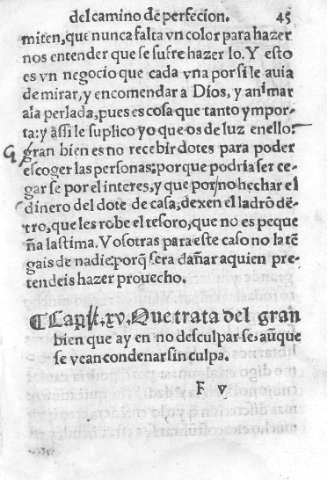 del camino de perfecion. 45
miten, que nunca falta vn color para hazer
nos entender que se sufre hazer lo. Y esto
es vn negocio que cada vna por si le auia
de mirar, y encomendar a Dios, y animar
ala perlada, pues es cosa que tanto ympor
ta: y assi le suplico yo que os de luz enello:
gran bien es no recebir dotes para poder
escoger las personas: porque podria ser ce-
gar se por el interes, y que por no hechar el
dinero del dote de casa, dexen el ladrõ dẽ-
tro, que les robe el tesoro, que no es peque
ña lastima. Vosotras para este caso no la tẽ
gais de nadie: porq̃ sera dañar a quien pre-
tendeis hazer prouecho.
¶ Capit. xv. Que trata del gran
bien que ay en no desculpar-se, aũque
se vean condenar sin culpa.
F v